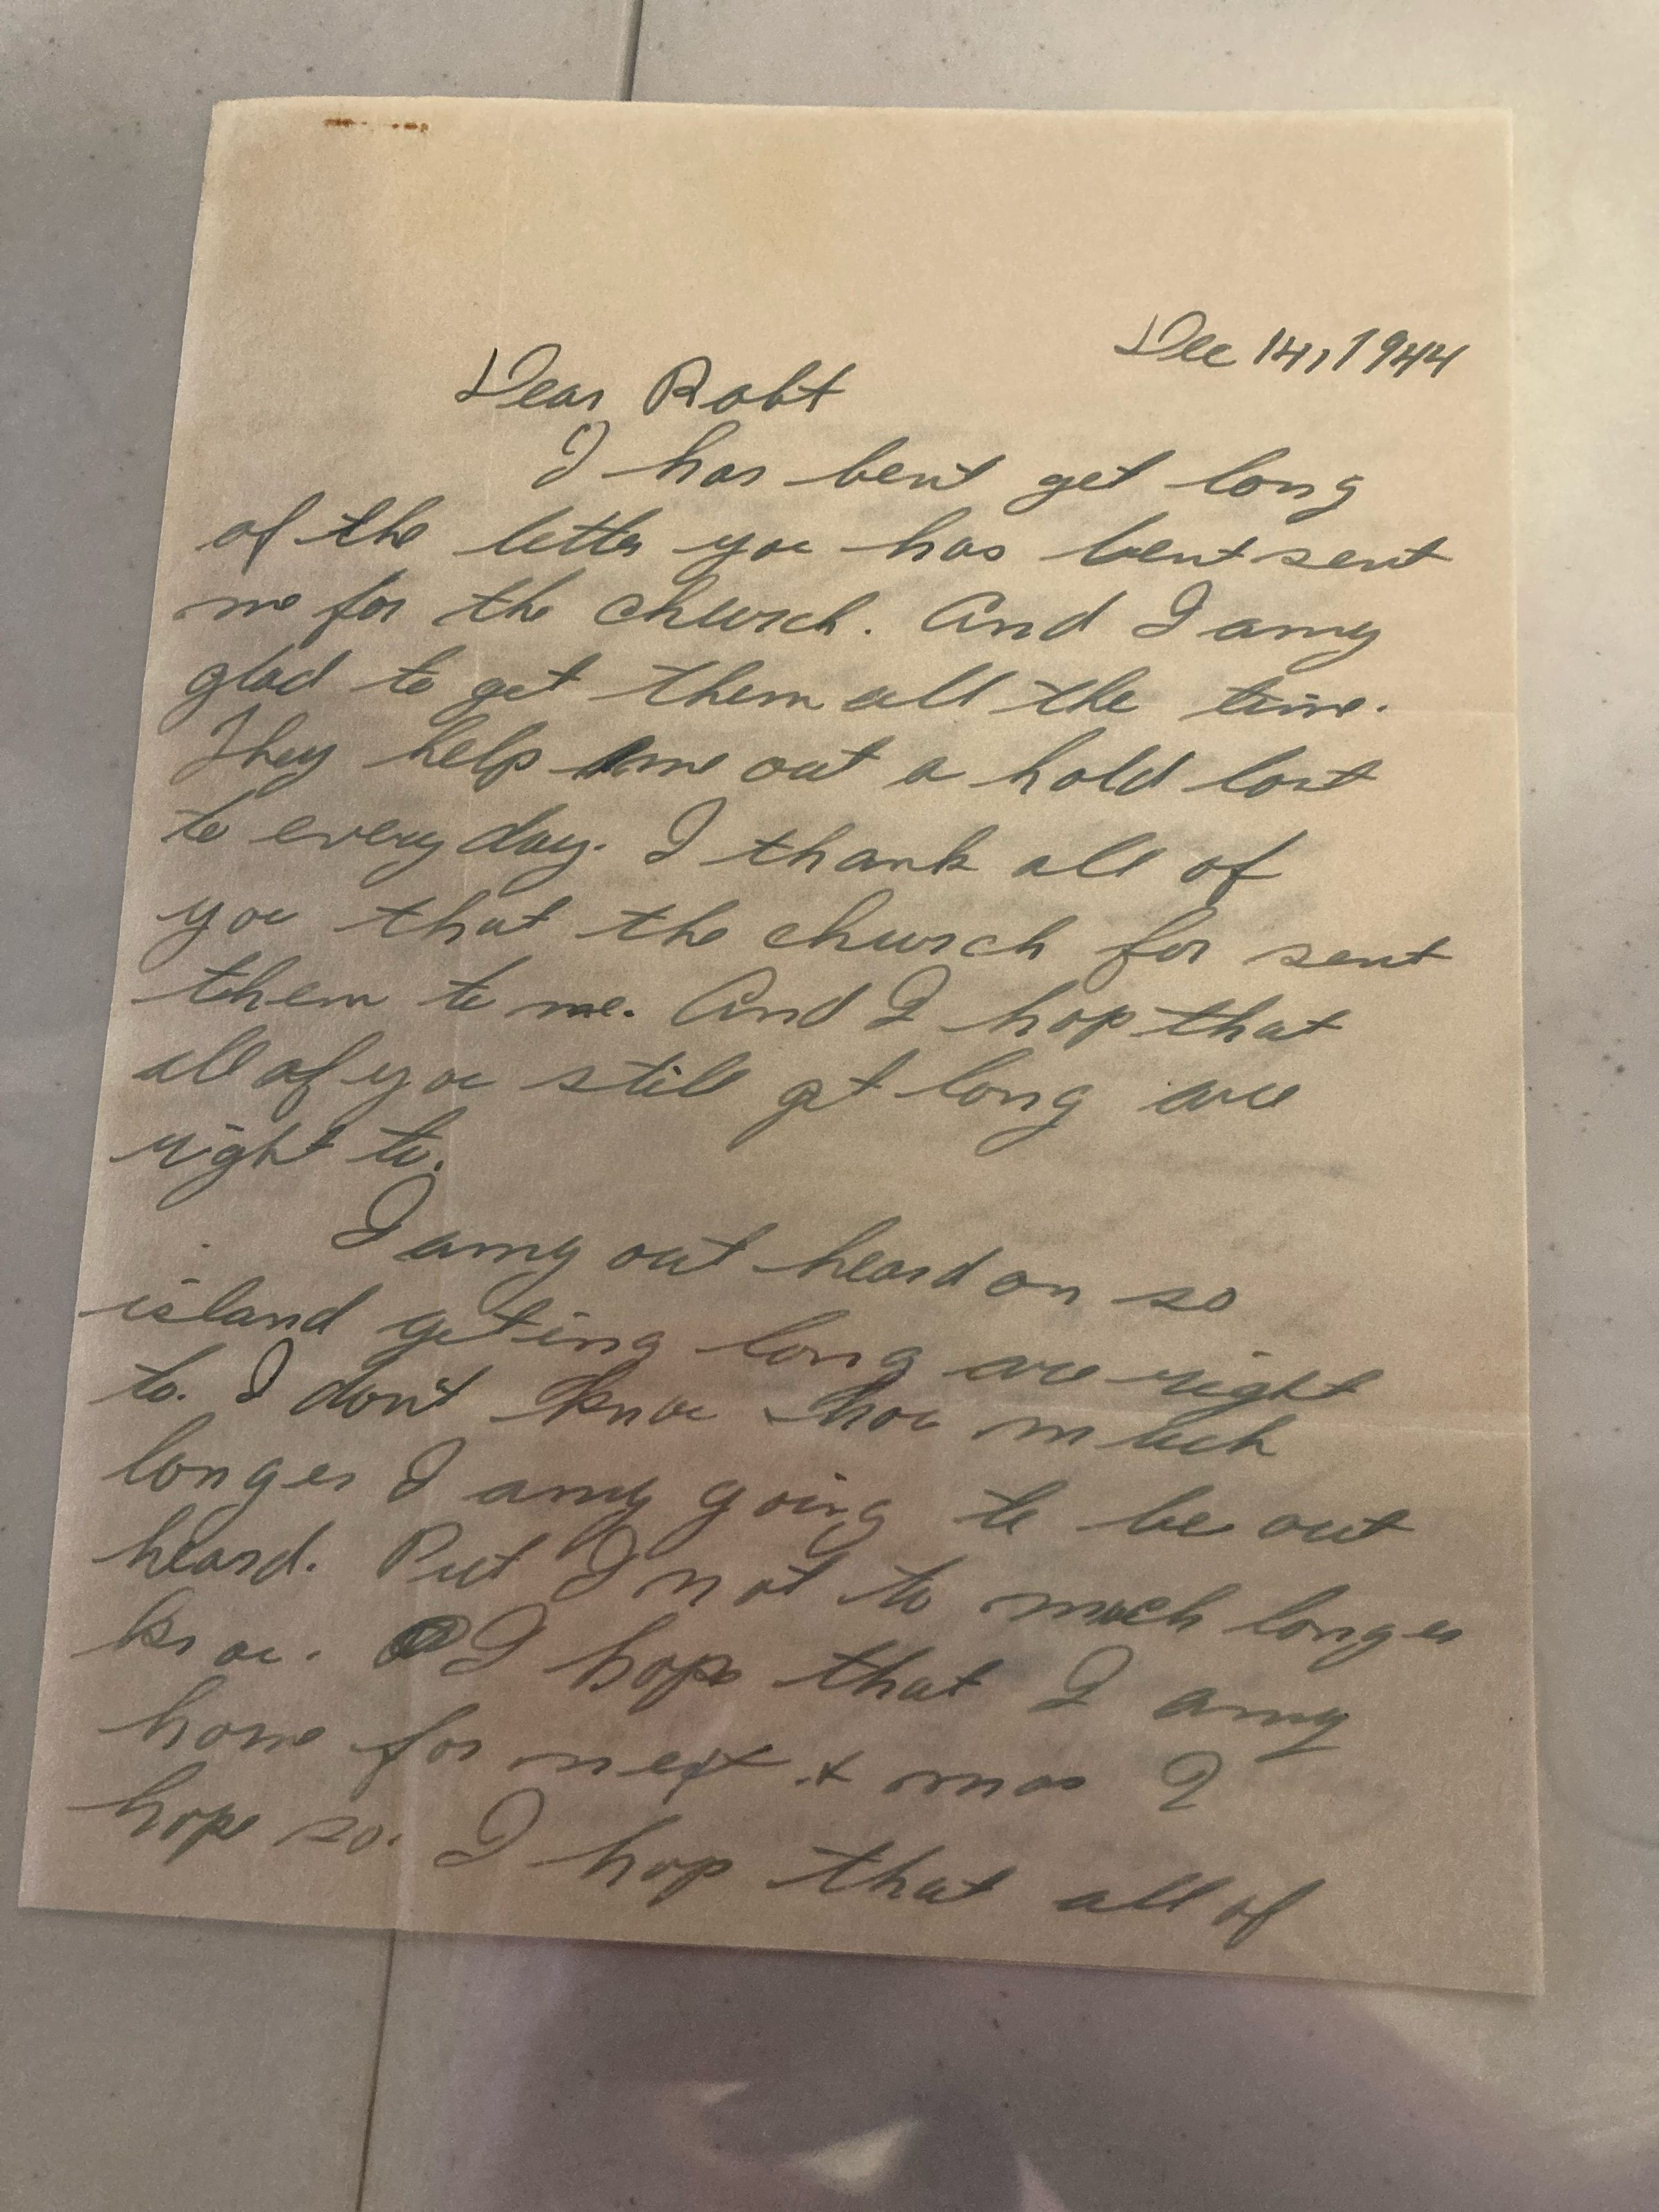 Dec 14, 1944
Dear Robt
I has bent get long
of the letter you has bent sent
me for the church. And I amy
glad to get them all the time.
They help me out a hold lost
to every day. I thank all of
you that the church for sent
them to me. And I hop that
all of you still gt long are
right to.
I amy out heard on so
island geting long are right
to. I don't know how much
longer I amy going to be out
heard. Put I not to much longer
know. I hope that I amy
home for next x mas I
hope so. I hop that all of